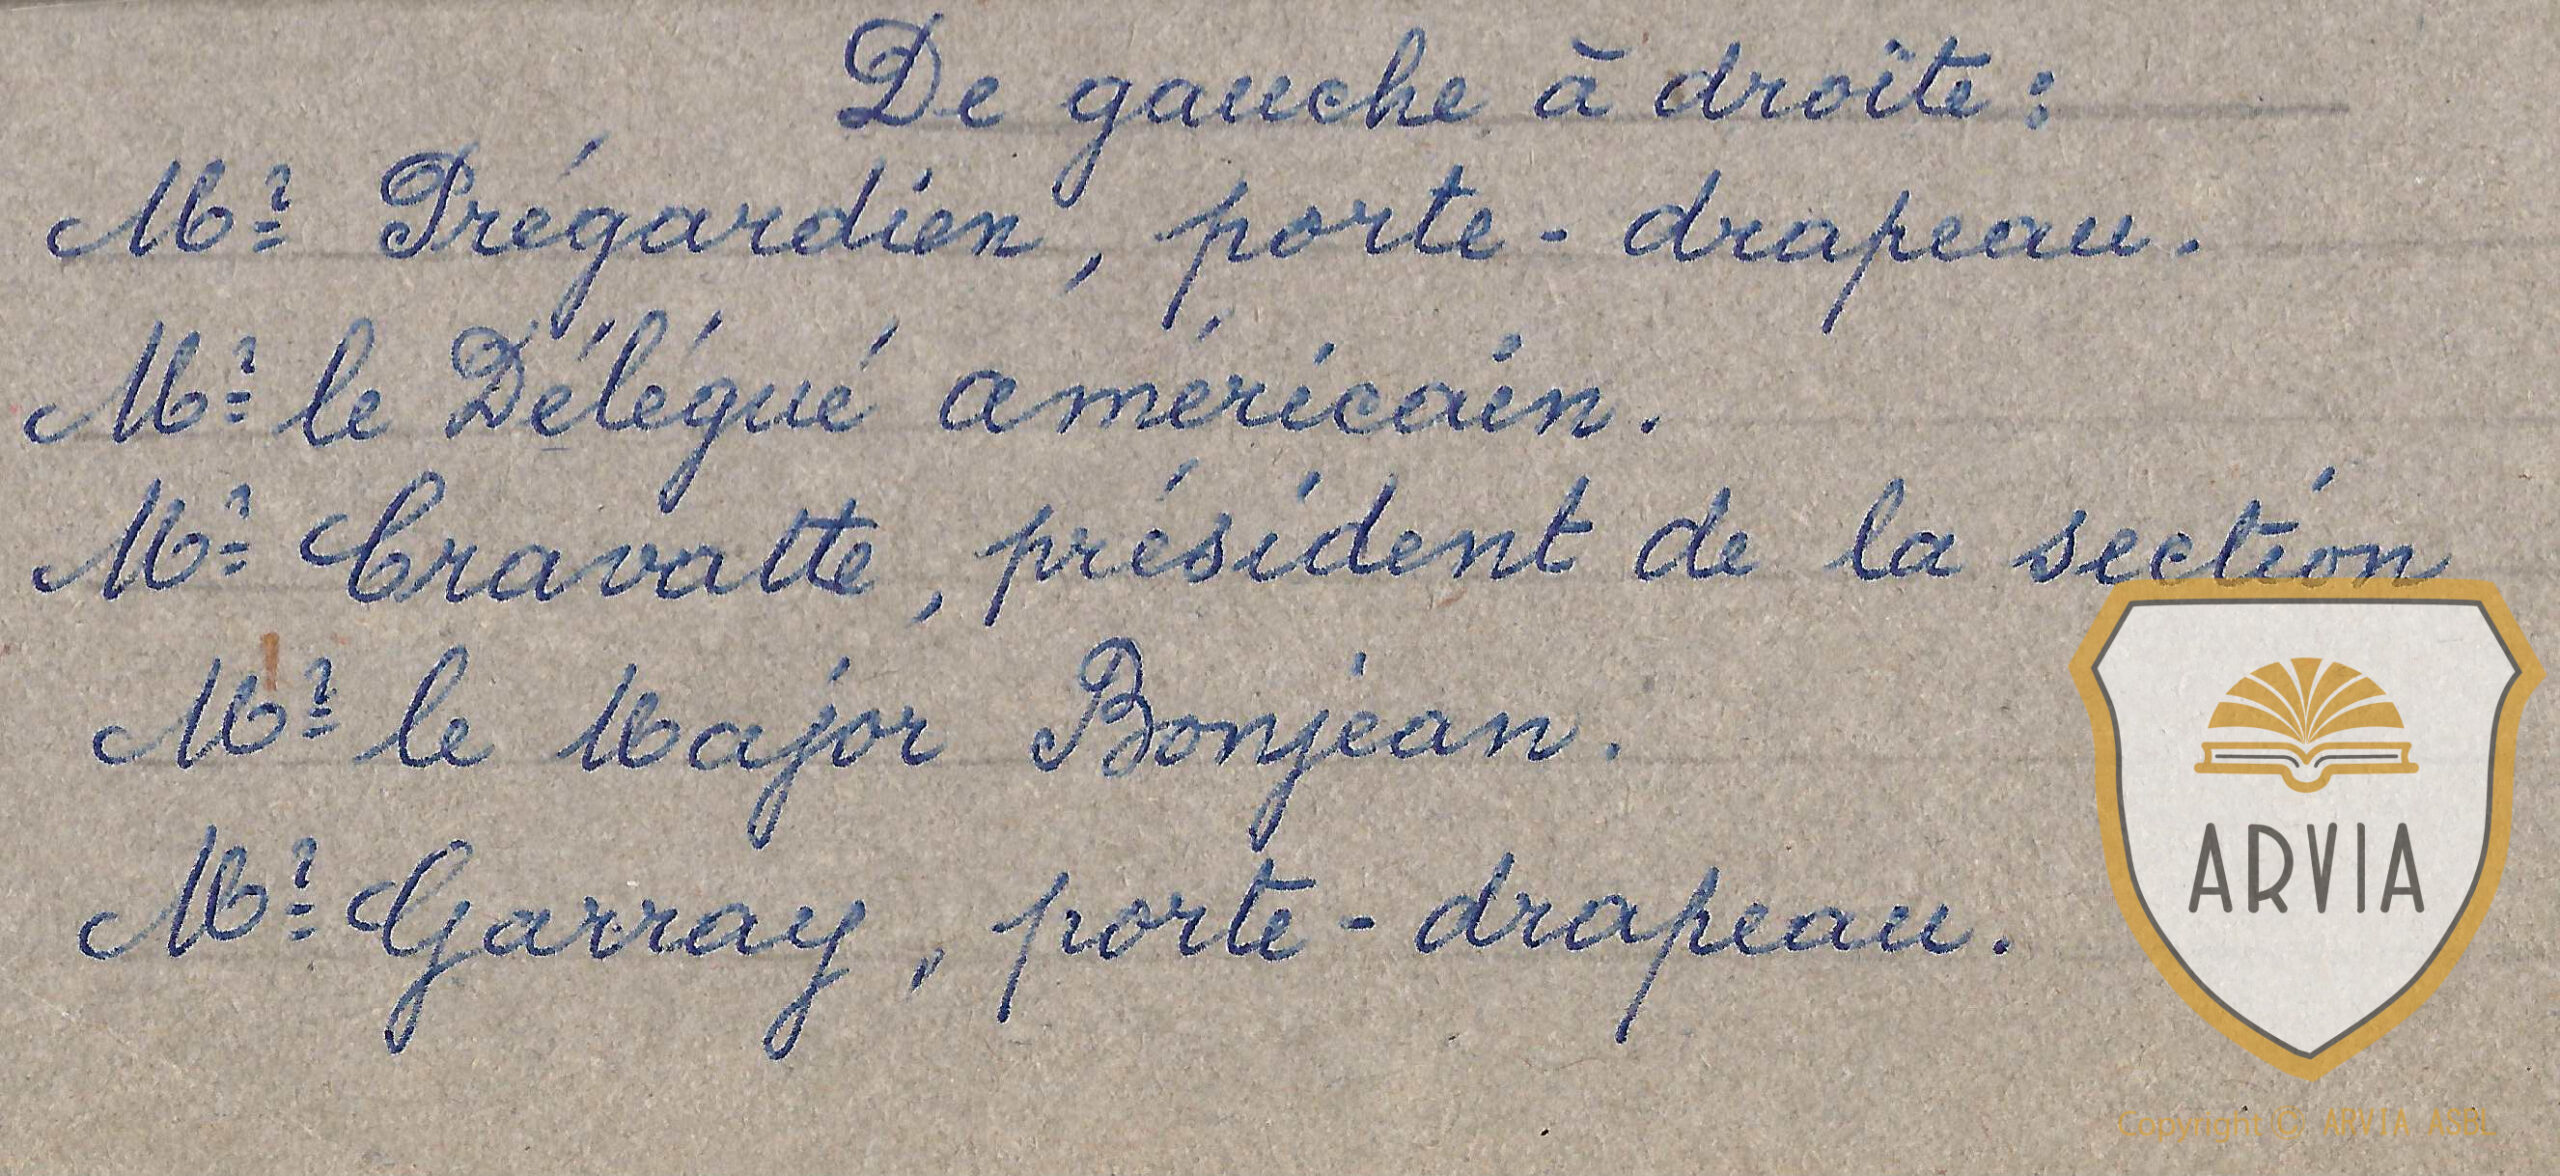 De gauche à droite :
Mr Prégardien, porte-drapeau.
Mr le Délégué américain.
Mr Cravatte, président de la section
Mr le Major Bonjean.
Mr Garray, porte-drapeau.
ARVIA
Copyright © ARVIA ASBL